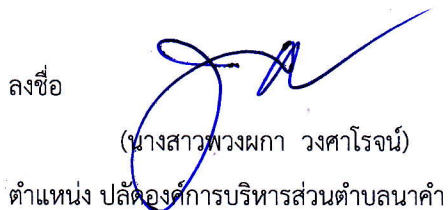 ลงชื่อ
(นางสาวพวงผกา วงศาโรจน์)
ตำแหน่ง ปลัดองค์การบริหารส่วนตำบลนาคำ